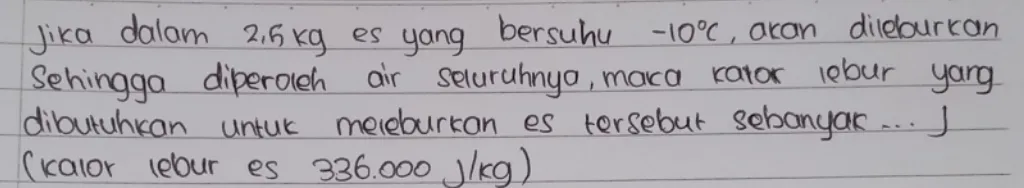 Jika dalam 2,5 kg es yang bersuhu -10°C, akan dileburkan
Sehingga diperoleh air seluruhnya, maka kalor lebur yang
dibutuhkan untuk meleburkan es tersebut sebanyak ... J
(kalor lebur es 336.000 J/kg)